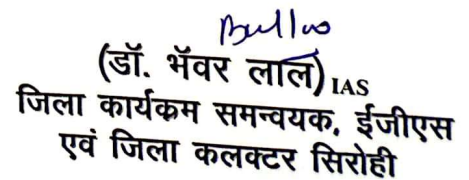 (डॉ. भॅवर लाल) IAS
जिला कार्यकम समन्वयक, ईजीएस
एवं जिला कलक्टर सिरोही